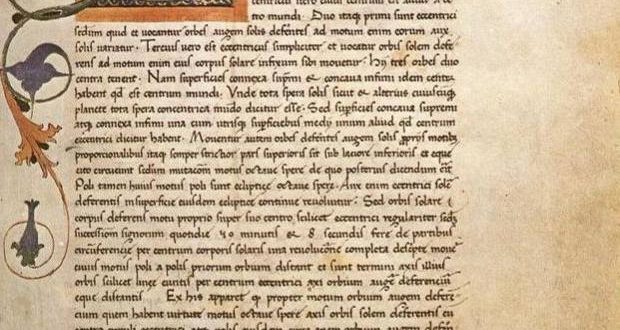 centricus vero cuius centrum est aliud a cen
tro mundi. Duo itaq primi sunt eccentrici
sedm quid et vocantur orbes augem solis defentes ad motum enim eorum aux
solis variatur. Tercius vero est eccentricus simpliciter et vocatur orbis solem defe
rens ad motum enim eius corpus solare infixum sibi movetur. Hy tres orbes duo
centra tenent. Nam superficies connexa supmi & concava infimi idem centrz
habent qd est centrum mundi. Unde tota spera solis sicut & alterius cuiuscuiqz
planete tota spera concentrica mudo dicitur esse. Sed supficies concava supremi
atqz connexa infimi una cum utrisqz supficiebus medy unum aliud qd centrum
eccentrici dicitur habent. Moventur autem orbes defentes augem solis pprys motibz
proporcionalibus itaqz semper strictior pars superioris sit sub laciore inferioris et eque
cito circueunt sedum mutacom motus octave spere de quo posterius dicendum erit
Poli tamen huius motus poli sunt ecliptice octave spere. Aux enim eccentrici sole
deferentis in superficie eiusdem ecliptice continue revoluitur. Sed orbis solare
corpus deferens motu proprio super suo centro scilicet eccentrici regulariter sedz
successiom signorum quotidie 59 minutis & 8 secundis fere de partibus
circuferencie per centrum corporis solaris una revolucione completa descripte move
cuius motus poli a polis priorum orbium distant et sunt termini axis illius
orbis scilicet linee euntis per centrum eccentrici axi orbium auge deferenciu
eque distantis Ex his apparet q propter motum orbium augem defere
cium quem habent virtute motus octave spere axis orbis solem deferentis eu